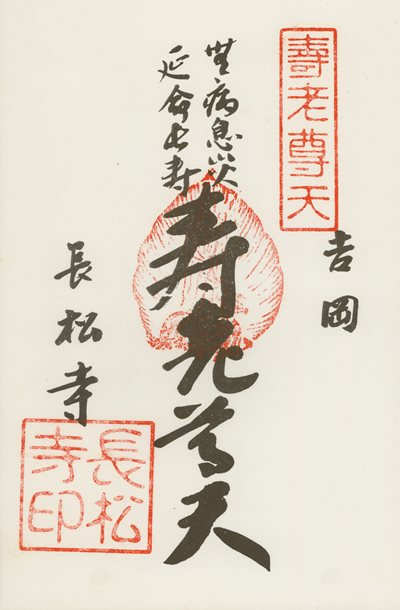 壽老尊天
吉岡
無病息災
延命長寿
寿老尊天
長松寺
長松
寺印